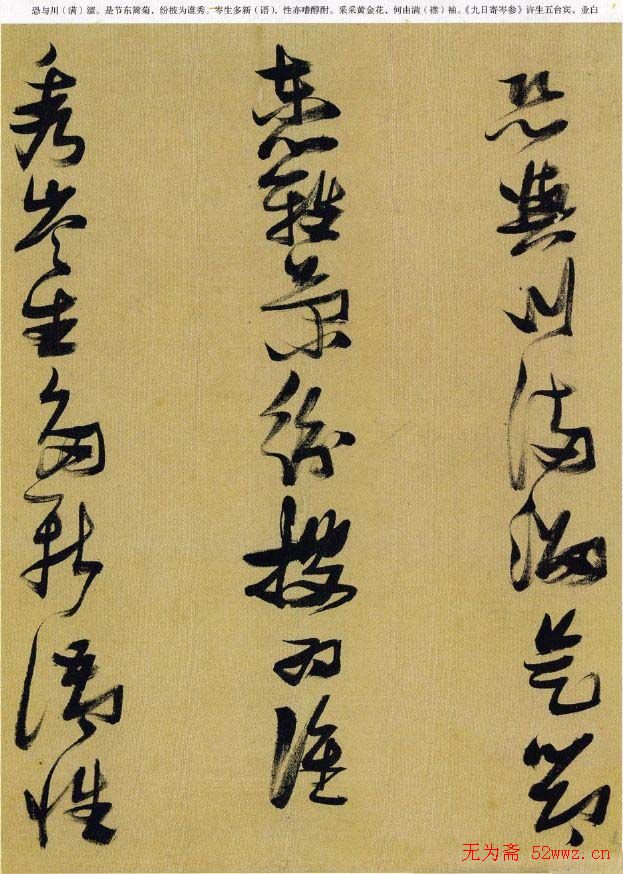 恐与川（满）溜。是节东篱菊，纷披为谁秀。岑生多新（语），性亦嗜醇酎。采采黄金花，何由满（襟）袖。《九日寄岑参》许生五台宾，业白
恐與川滿溜是節
東籬菊紛披為誰
秀岑生多新語性
无为斋 52wwz.cn